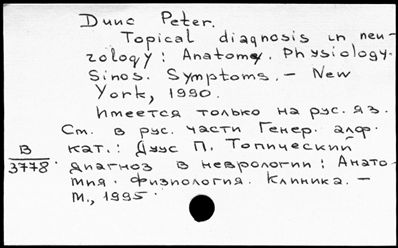 Duus Peter.
Topical diagnosis in neu-
rology: Anatomy. Physiology.
Sinos. Symptoms. – New
York, 1990.
Имеется только на рус. яз.
См. в рус. части Генер. алф.
кат.: Дуус П. Топический
В
3778. диагноз в неврологии: Анато-
мия. Физиология. Клиника. –
М., 1995.